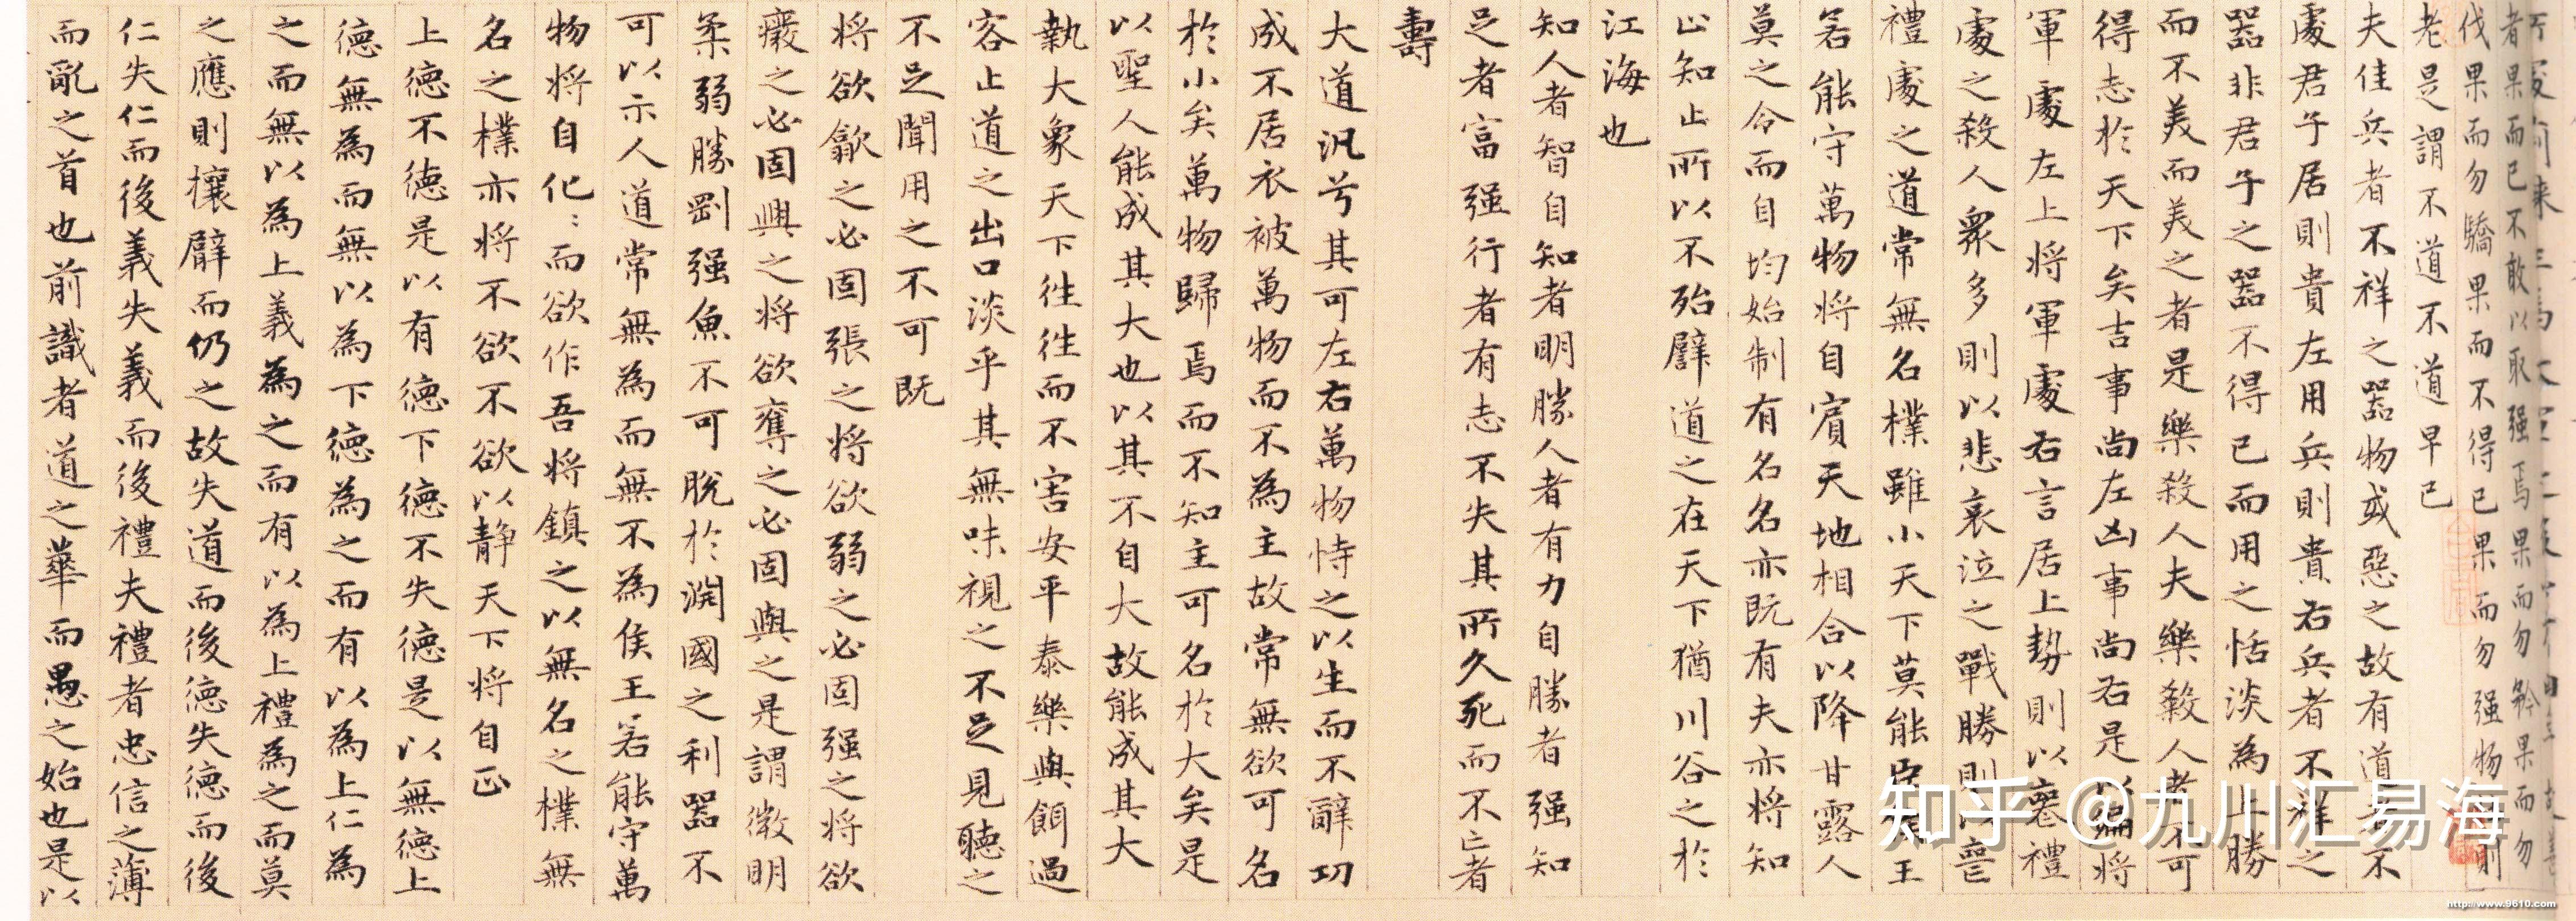 者果而已不敢以取强焉果而勿矜果而勿
伐果而勿驕果而不得已果而勿强物則
老是謂不道不道早已
夫佳兵者不祥之器物或惡之故有道不
處君子居則貴左用兵則貴右兵者不祥之
器非君子之器不得已而用之恬淡為上勝
而不美而美之者是樂殺人夫樂殺人者不可
得志於天下矣吉事尚左凶事尚右是以偏將
軍處左上將軍處右言居上勢則以喪禮
處之殺人衆多則以悲哀泣之戰勝則喪
禮處之道常無名樸雖小天下莫能臣王
若能守萬物將自賓天地相合以降甘露人
莫之令而自均始制有名名亦既有夫亦將知
止知止所以不殆譬道之在天下猶川谷之於
江海也
知人者智自知者明勝人者有力自勝者强知
足者富强行者有志不失其所久死而不亡者
壽
大道汎兮其可左右萬物恃之以生而不辭功
成不居衣被萬物而不為主故常無欲可名
於小矣萬物歸焉而不知主可名於大矣是
以聖人能成其大也以其不自大故能成其大
執大象天下往往而不害安平泰樂與餌過
客止道之出口淡乎其無味視之不足見聽之
不足聞用之不可既
將欲歙之必固張之將欲弱之必固强之將欲
廢之必固興之將欲奪之必固與之是謂微明
柔弱勝剛强魚不可脫於淵國之利器不
可以示人道常無為而無不為侯王若能守萬
物將自化〻而欲作吾將鎮之以無名之樸無
名之樸亦將不欲不欲以静天下將自正
上德不德是以有德下德不失德是以無德上
德無為而無以為下德為之而有以為上仁為
之而無以為上義為之而有以為上禮為之而莫
之應則攘臂而仍之故失道而後德失德而後
仁失仁而後義失義而後禮夫禮者忠信之薄
而亂之首也前識者道之華而愚之始也是以
知乎 @九川汇易海
http://www.9610.com